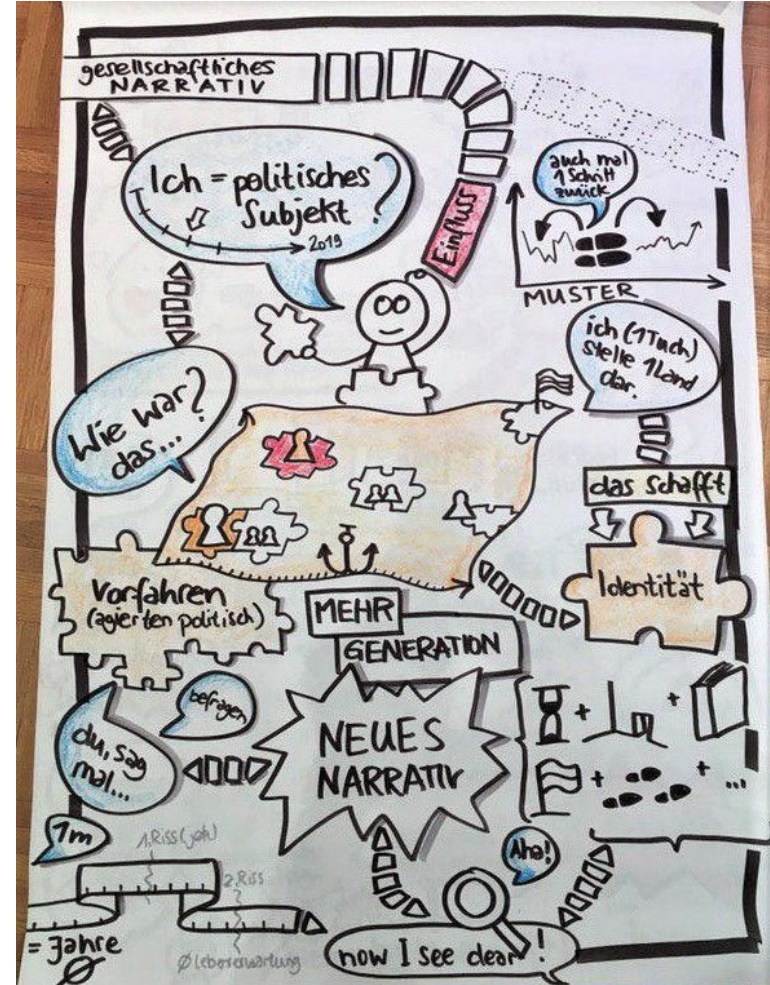 gesellschaftliches
NARRATIV
Ich = politisches
Subjekt ?
2019
Einfluss
auch mal
1 Schritt
zurück
MUSTER
ich (1 Tuch)
stelle 1 Land
dar.
Wie war
das... ?
das schafft
Identität
Vorfahren
(agierten politisch)
MEHR
GENERATION
befragen
du, sag
mal...
NEUES
NARRATIV
+ +
+ + ...
1m
1. Riss (jetzt)
2. Riss
Aha!
= Jahre
Ø
Ø Lebenserwartung
now I see clear !